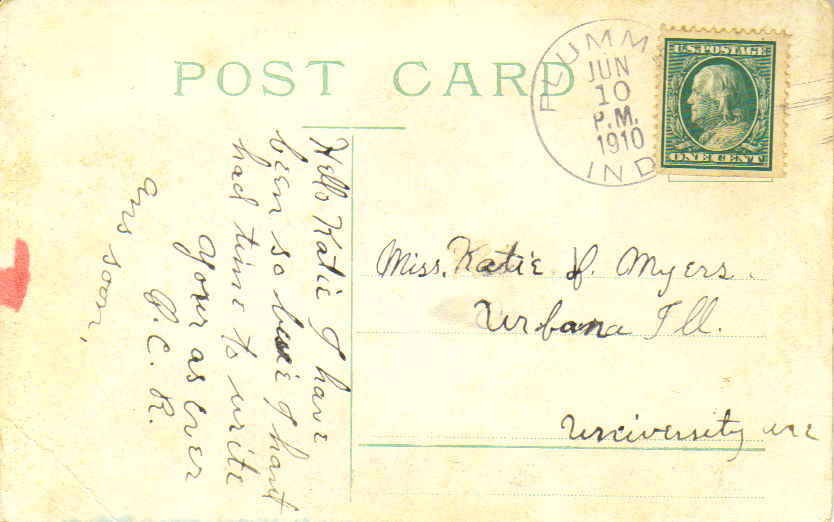 POST CARD
PLUMM
JUN
10
P.M.
1910
IND
U.S. POSTAGE
ONE CENT
Hello Katie I have
been so busie I hant
had time to write
your as ever
P. C. R.
ans soon,
Miss. Katie D. Myers.
Urbana Ill.
University ave